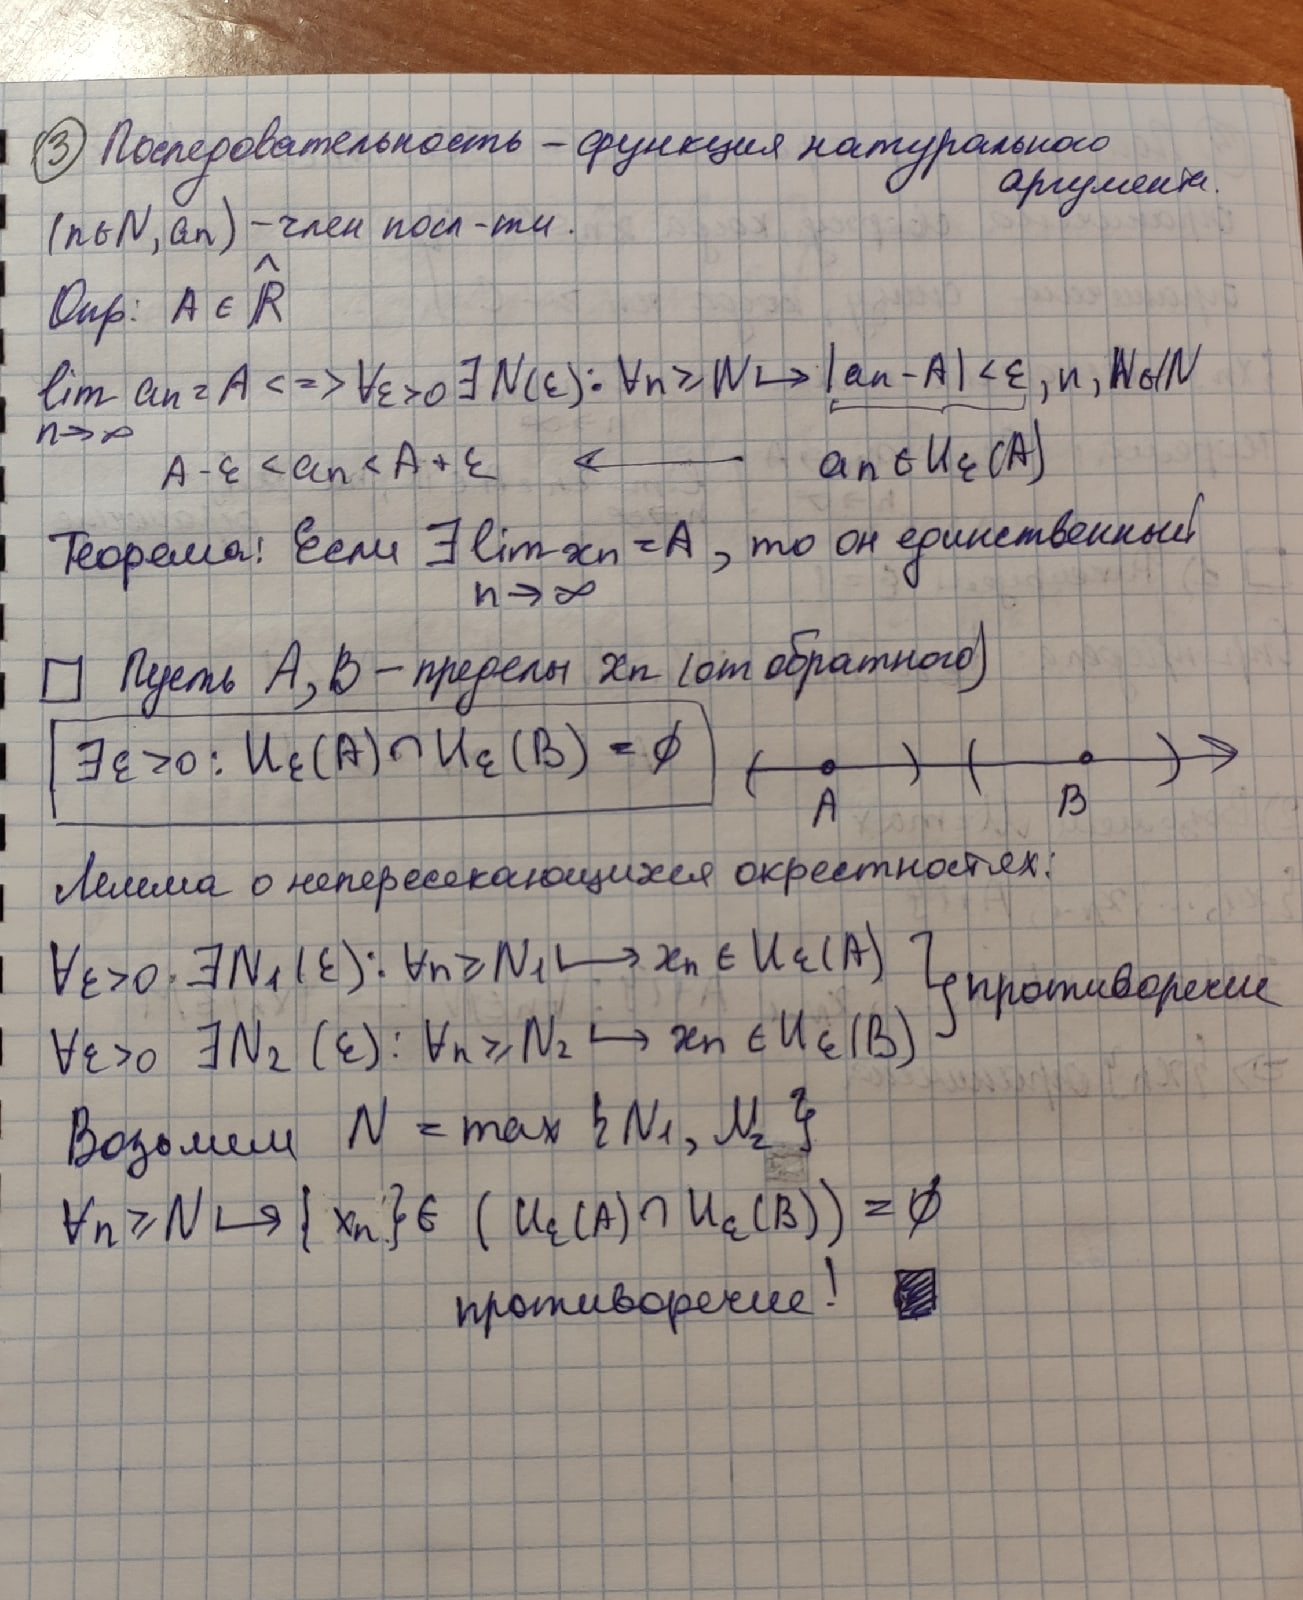 ③ Последовательность – функция натурального
аргумента.
(n∈N, an) – член посл-ти.
Опр: A ∈ R̂
lim an = A <=> ∀ε>0 ∃N(ε): ∀n≥N ↦ |an - A| < ε, n, N∈N
n→∞
A-ε < an < A+ε ← an ∈ Uε(A)
Теорема: Если ∃ lim xn = A, то он единственный
n→∞
□ Пусть A, B – пределы xn (от обратного)
∃ε>0: Uε(A) ∩ Uε(B) = ∅
A B
Лемма о непересекающихся окрестностях:
∀ε>0 ∃N1(ε): ∀n≥N1 ↦ xn ∈ Uε(A) } противоречие
∀ε>0 ∃N2(ε): ∀n≥N2 ↦ xn ∈ Uε(B)
Возьмем N = max {N1, N2}
∀n≥N ↦ {xn} ∈ (Uε(A) ∩ Uε(B)) = ∅
противоречие! ■